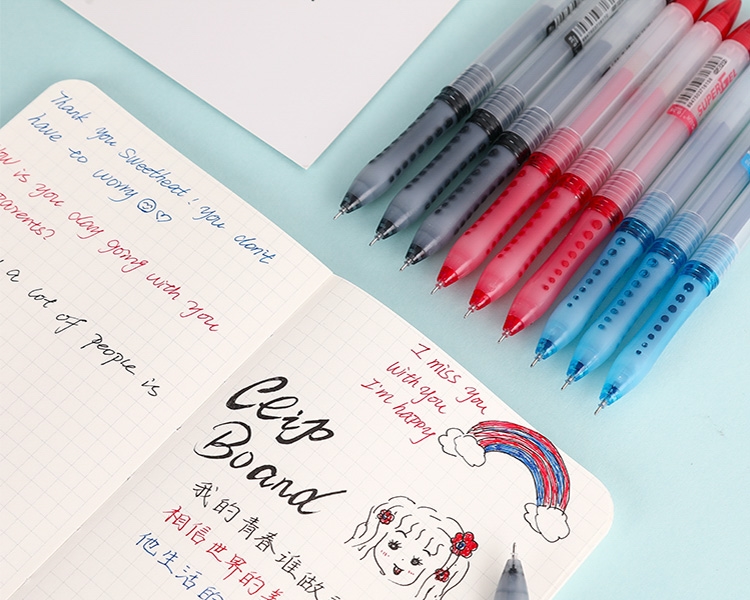 Thank you Sweetheat! you don't
have to worry
ow is you day going with you
parents?
a lot of people is
I miss you
With you
I'm happy
Clip
Board
我的青春谁做
相信世界的美
他生活的
SUPERGEL